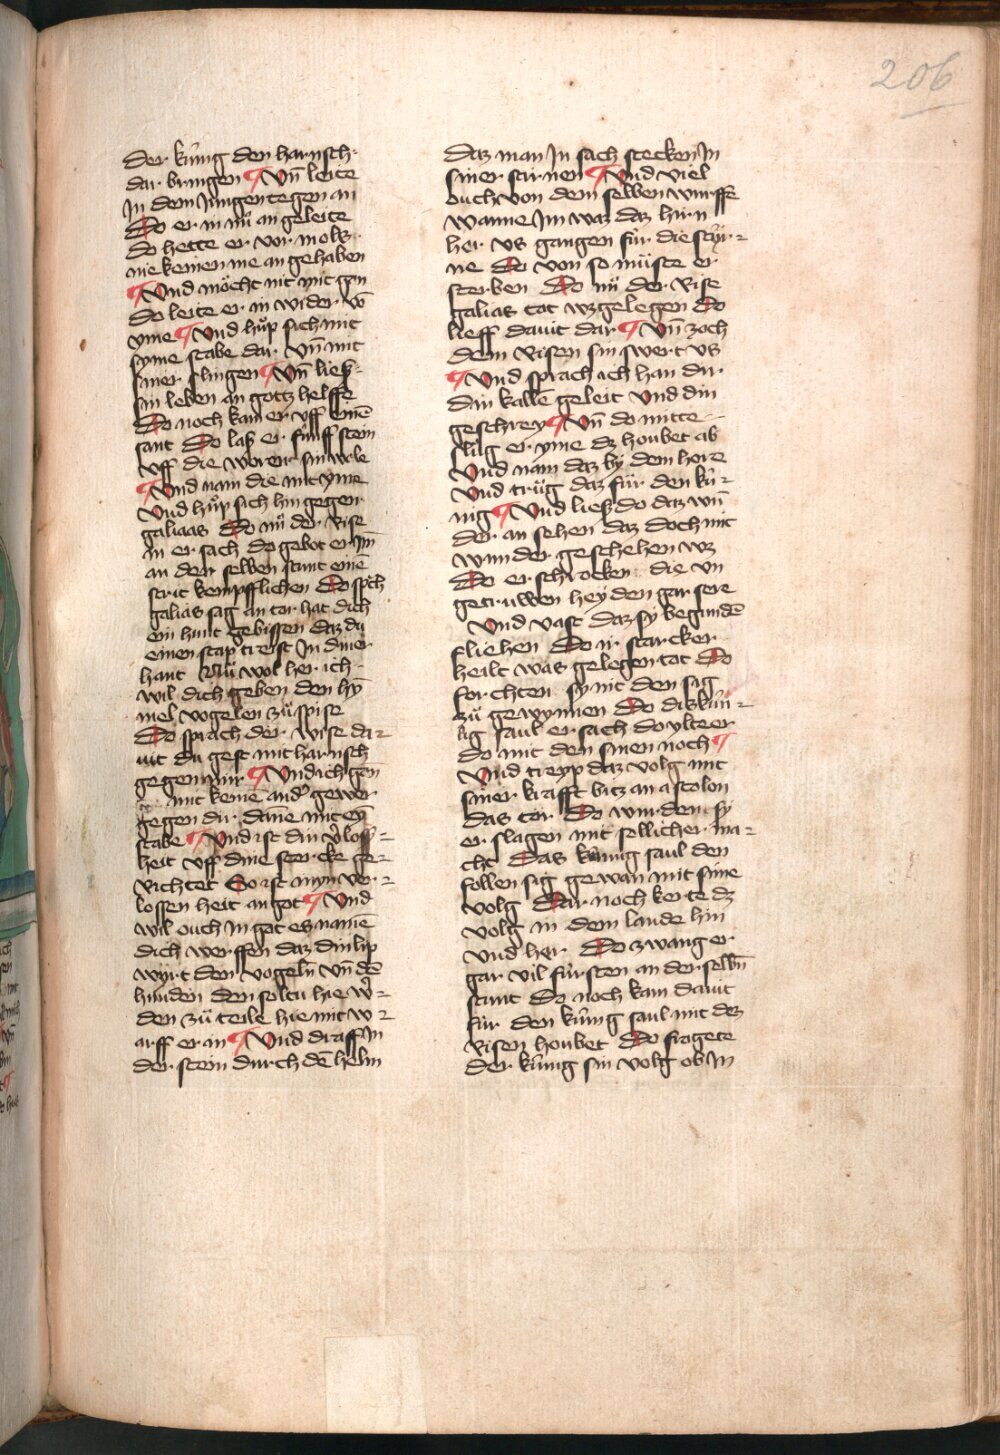 206
der kúnig den harnsch
dar bringen ¶ Vn̄ leite
In dem Jungen tegen an
Do er in nuͦ an geleite
do hette er vor mols
nie keinen me an gehaben
¶ Vnd moͤcht nit mit gan
do leite er in wider vō
yme ¶ Vnd huͦp sich mit
syme stabe dar Vn̄ mit
siner slingen ¶ Vn̄ ließ
sin leben an gottz helffe
Do noch kam er vff einē
sant Do laß er fúnff stein
vff die woren sinwele
¶ Vnd nam die mit yme
Vnd huͦp sich hin gegen
galiaas Do nuͦ der Rise
in er sach do gebot er Jm̄
an der selben stunt einē
strit kempfflichen Do sp̄ch
galias sag an tor hat dich
ein hunt gebissen daz du
einen stap treist In diner
hant Nuͦ wol her ich
wil dich geben den hȳ
mel vogelen zuͦ spise
Do sprach der wise da=
uit du gest mit harnsch
gegen mir ¶ Vnd ich gan
mit keine and̓ gewer
gegen dir dāne mit eȳ
stabe ¶ Vnd ist din v̓loss=
heit vff dine stercke ge=
richtet So ist myn ver=
lossen heit an got ¶ Vnd
wil ouch In got es namē
dich werffen daz din lip
wyrt den vogeln̄ vn̄ dē
hunden den soltu hie w̓=
den zuͦ teile hie mit w=
arff er an ¶ Vnd draff In
der stein durch dē helm
daz man In sach stecken In
siner stirnen ¶ Vnd viel
ouch von dem selben wurffe
wanne Im waz daz hirn
her vs gangen fúr die styr=
ne Do von so muͤste er
sterben Do nuͦ der Rise
galias tot wz gelegen Do
lieff dauit dar ¶ Vn̄ zoch
dem Risen sin swert vs
¶ Vnd sprach ich han dir
din kallē geleit Vnd din
geschrey ¶ Vn̄ do mitte
sluͦg er yme dz houbet ab
Vnd nam daz by dem hore
Vnd truͦg daz fúr den kú=
nig ¶ Vnd ließ do daz wū
der an sehen daz doch mit
wunder geschehen wz
Do er schrocken die vn
getruwen heyden gar sere
Vnd vast daz sy begundē
fliehen Do ir starcker
heilt was gelegen tot Do
forchten sy nit den sig
zuͦ gewynnen Do diz kún=
nig saul er sach do ylte er
do mit den sinen noch ¶
Vnd treyp daz volg mit
siner krafft bitz an astolon
das tor Do wurden sy
er slagen mit sellicher ma=
cht Das kúnnig saul den
follen sig gewan mit sime
volg Dar noch kerte dz
volg in dem lande hin
vnd her Do zwang er
gar vil fúrsten an der selbn̄
stunt Do noch kam dauit
fúr den kúnig saul mit dez
Risen houbet Do fragete
der kúnig sin volg ob In